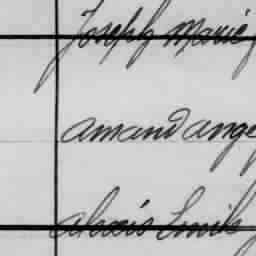 Joseph Marie
amand ange
alexis Emile